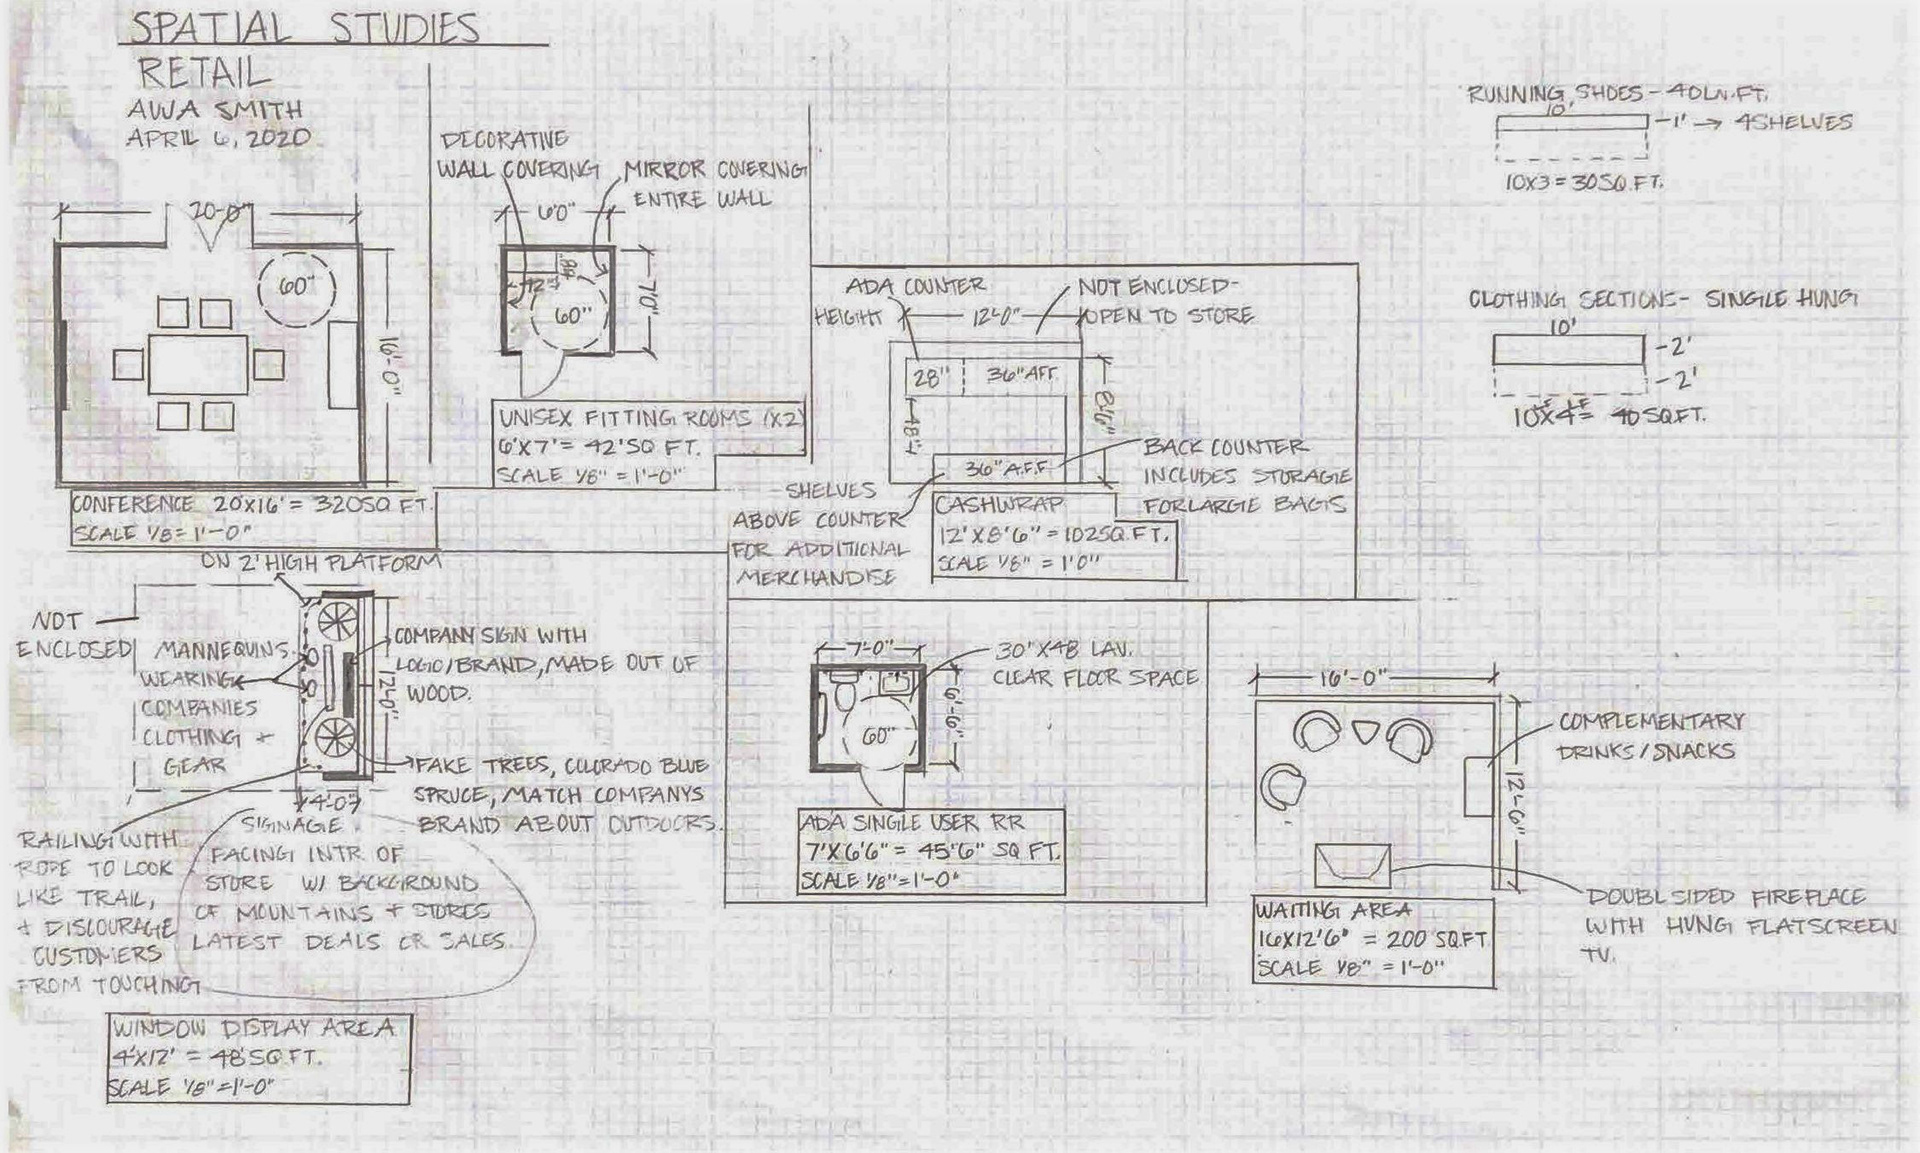 SPATIAL STUDIES
RETAIL
AWA SMITH
APRIL 6, 2020
20-0"
60"
16'-0"
CONFERENCE 20X16' = 320SQ FT.
SCALE 1/8=1'-0"
DECORATIVE
WALL COVERING
MIRROR COVERING
ENTIRE WALL
6'0"
60"
7'0"
UNISEX FITTING ROOMS (X2)
6'X7'= 42'SQ FT.
SCALE 1/8" = 1'-0"
ADA COUNTER
HEIGHT
12'-0"
NOT ENCLOSED-
OPEN TO STORE
28"
36" AFF.
48"
8'6"
36" A.F.F
BACK COUNTER
INCLUDES STORAGE
FOR LARGE BAGS
SHELVES
ABOVE COUNTER
FOR ADDITIONAL
MERCHANDISE
CASHWRAP
12'X8'6" = 102SQ.FT.
SCALE 1/8" = 1'0"
RUNNING SHOES - 40LN.FT.
10'
-1' → 4SHELVES
10X3 = 30SQ.FT.
CLOTHING SECTIONS- SINGLE HUNG
10'
-2'
-2'
10'X4'= 40SQ.FT.
ON 2' HIGH PLATFORM
NOT
ENCLOSED
MANNEQUINS
WEARING
COMPANIES
CLOTHING +
GEAR
COMPANY SIGN WITH
LOGO/BRAND, MADE OUT OF
WOOD.
12'-0"
4'-0"
FAKE TREES, COLORADO BLUE
SPRUCE, MATCH COMPANYS
BRAND ABOUT OUTDOORS.
RAILING WITH
ROPE TO LOOK
LIKE TRAIL,
+ DISCOURAGE
CUSTOMERS
FROM TOUCHING
SIGNAGE
FACING INTR. OF
STORE W/ BACKGROUND
OF MOUNTAINS + STORES
LATEST DEALS OR SALES.
WINDOW DISPLAY AREA
4'X12' = 48'SQ.FT.
SCALE 1/8"=1'-0"
7'-0"
30"X48 LAV.
CLEAR FLOOR SPACE
60"
6'-6"
ADA SINGLE USER RR
7'X6'6" = 45'6" SQ FT.
SCALE 1/8"=1'-0"
16'-0"
12'-6"
COMPLEMENTARY
DRINKS/SNACKS
DOUBL SIDED FIREPLACE
WITH HUNG FLATSCREEN
TV.
WAITING AREA
16X12'6" = 200 SQ.FT
SCALE 1/8" = 1'-0"